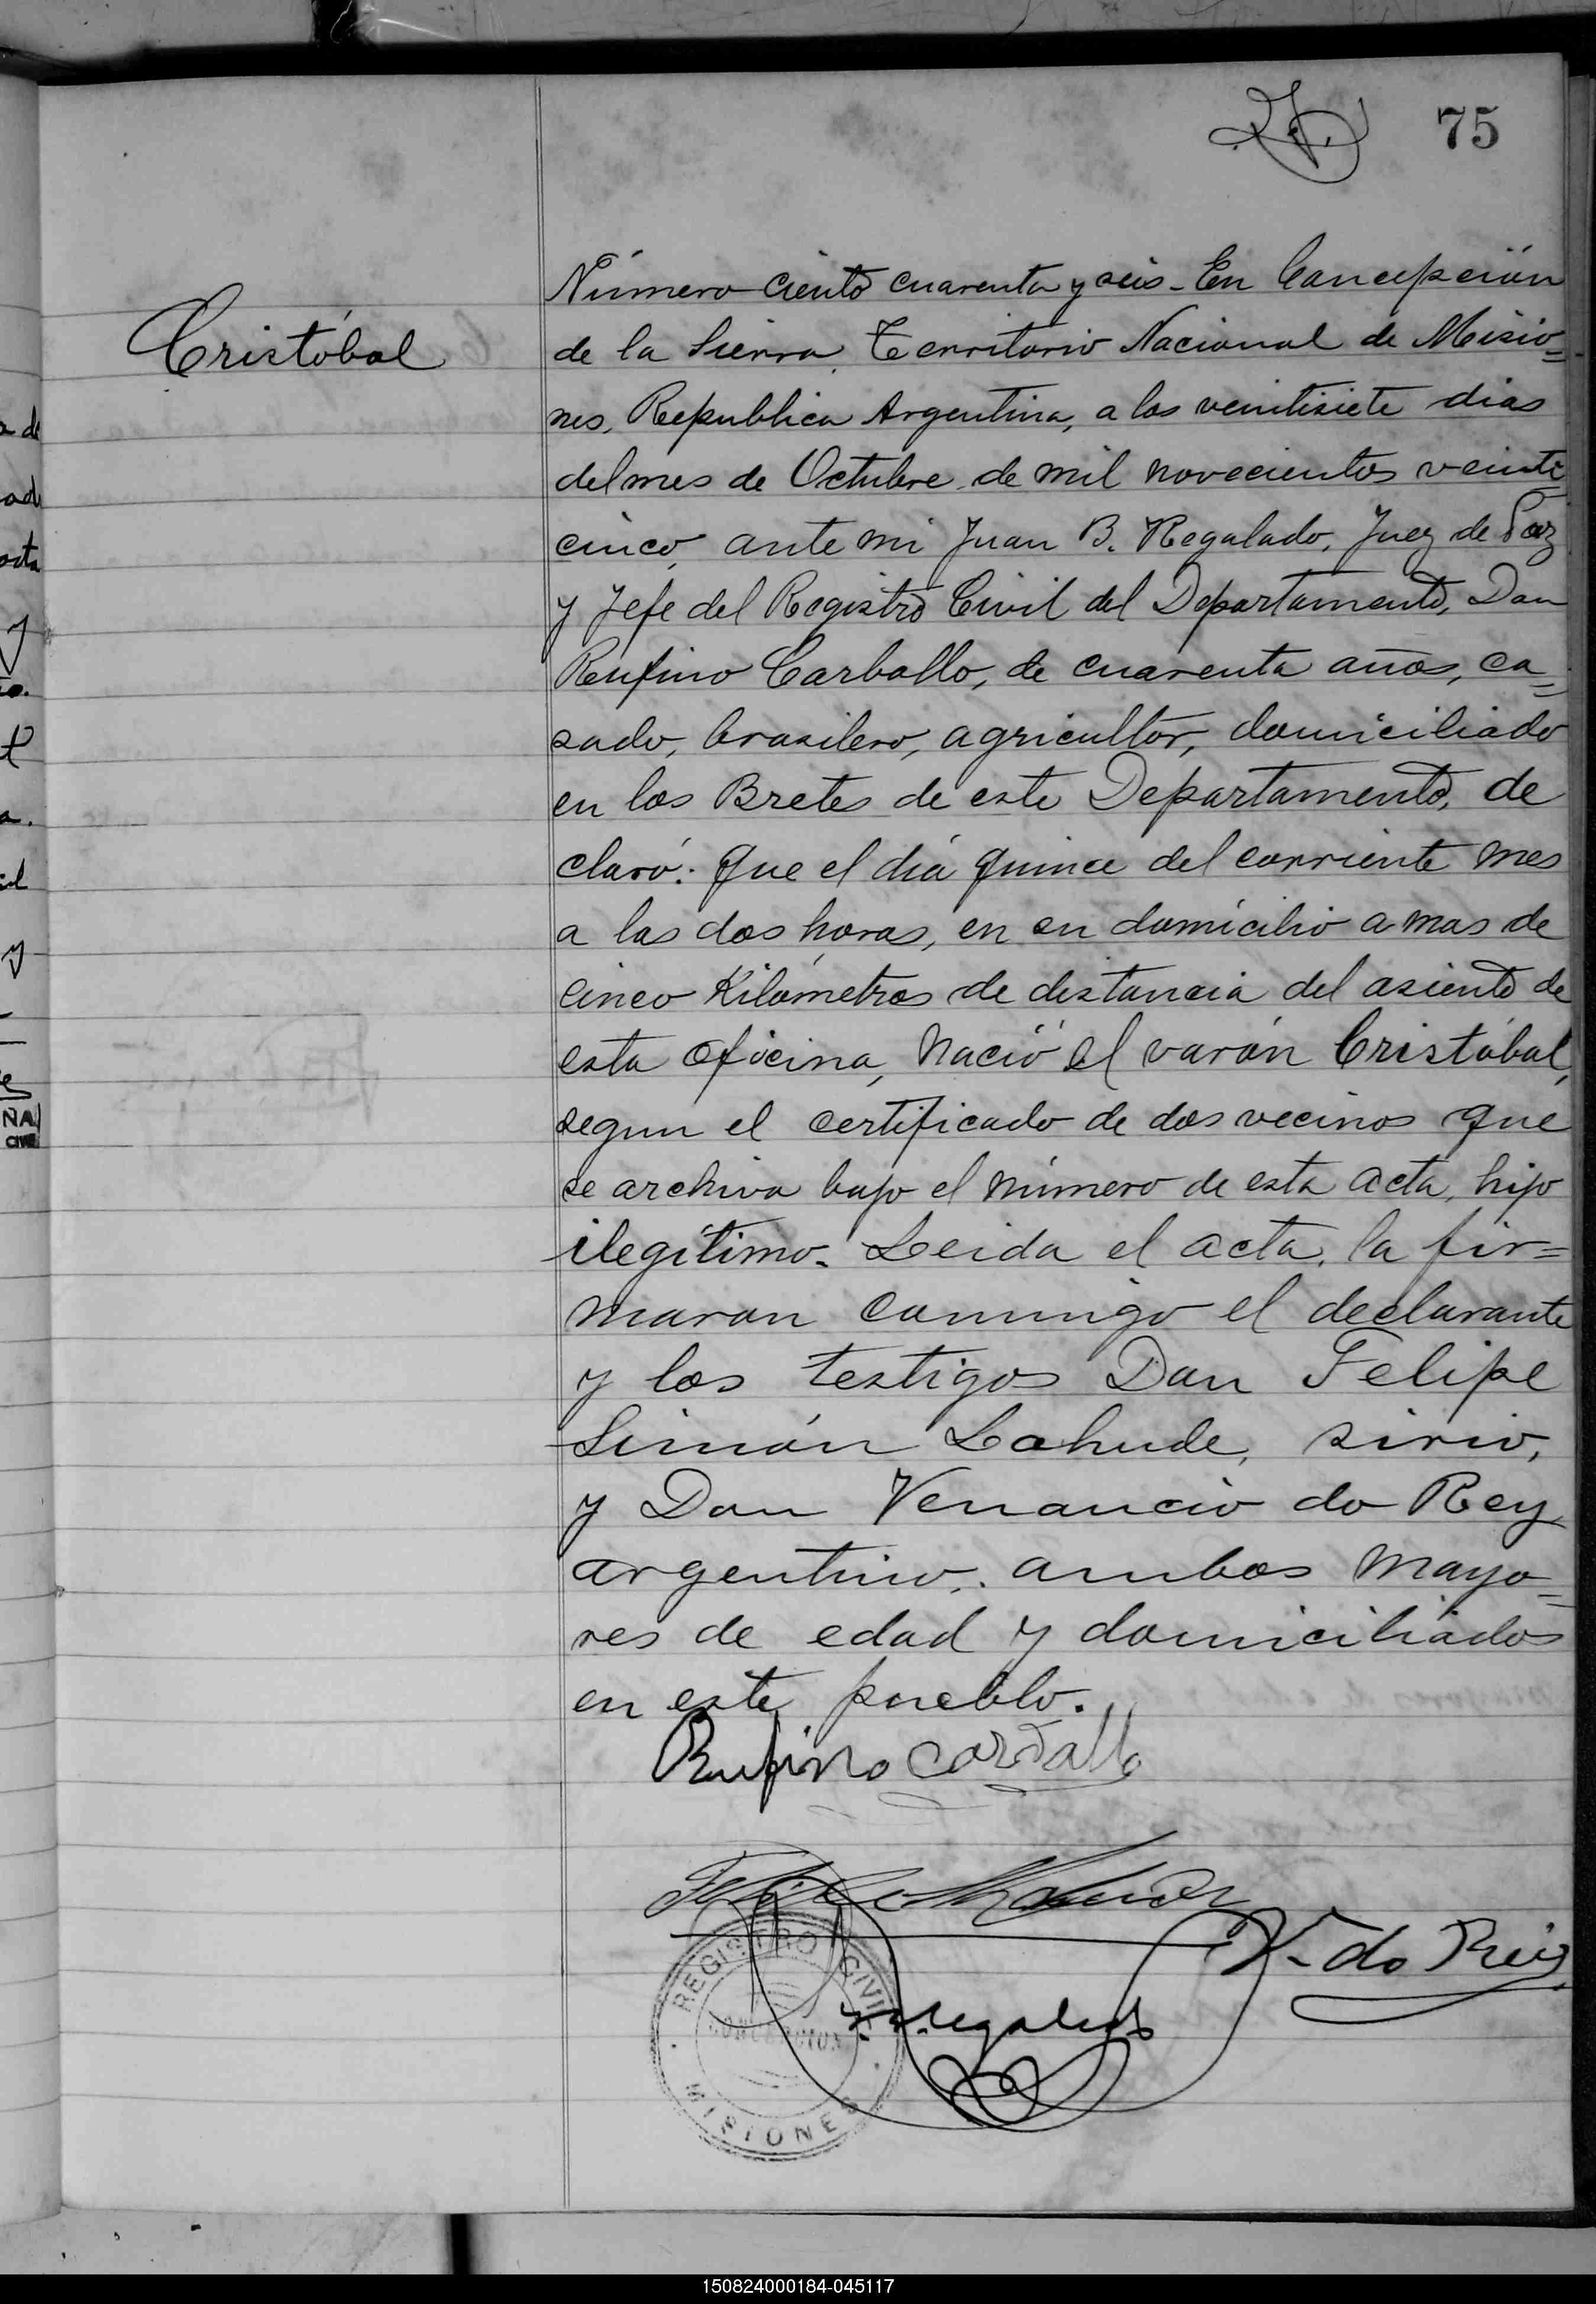 75
Cristóbal
Número ciento cuarenta y seis - En Concepción
de la Sierra, Territorio Nacional de Misio=
nes, Republica Argentina, a los veintisiete dias
del mes de Octubre de mil novecientos veinte
cinco, ante mi Juan B. Regalado, Juez de Paz
y Jefe del Registro Civil del Departamento, Don
Rufino Carballo, de cuarenta años, ca=
sado, brasilero, agricultor, domiciliado
en los Bretes de este Departamento, de
claró: Que el día quince del corriente mes
a las dos horas, en su domicilio a mas de
cinco Kilómetros de distancia del asiento de
esta oficina, nació el varón Cristóbal,
segun el certificado de dos vecinos que
se archiva bajo el número de esta acta, hijo
ilegítimo. Leida el acta, la fir=
maron conmigo el declarante
y los testigos Don Felipe
Simón Lahude, sirio,
y Don Venancio do Rey,
argentino, ambos mayo=
res de edad y domiciliados
en este pueblo.
Rufino Carballo
Felipe
V. do Reis
Regalado
REGISTRO CIVIL
CONCEPCION
MISIONES
a de
y
NA
CIVIL
150824000184-045117